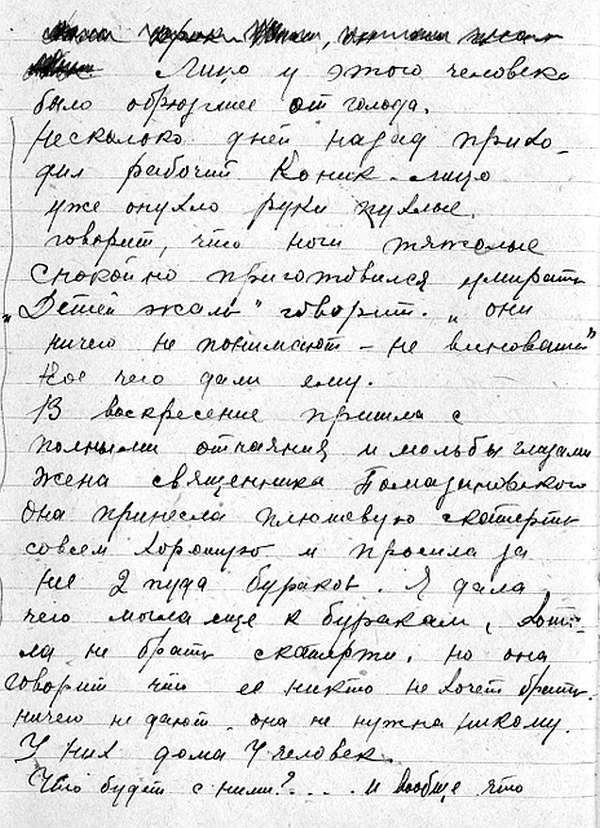 Лицо у этого человека
было обрюзгшее от голода.
Несколько дней назад прихо-
дил рабочий Коник - лицо
уже опухло руки пухлые,
говорит, что ноги тяжолые
спокойно приготовился умирать
"Детей жаль" говорит. "они
ничего не понимают - не виноваты"
Кое чего дали ему.
В воскресение пришла с
полными отчаяния и мольбы глазами
жена священника
она принесла плюшевую скатерть
совсем хорошую и просила за
нее 2 пуда бураков. Я дала
чего могла еще к буракам, хоте-
ла не брать скатерти, но она
говорит что ее никто не хочет брать
ничего не дают она не нужна никому.
У них дома 7 человек.
Что будет с ними?.... и вообще что